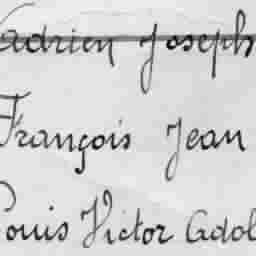 Adrien Joseph
François Jean
Louis Victor Adol